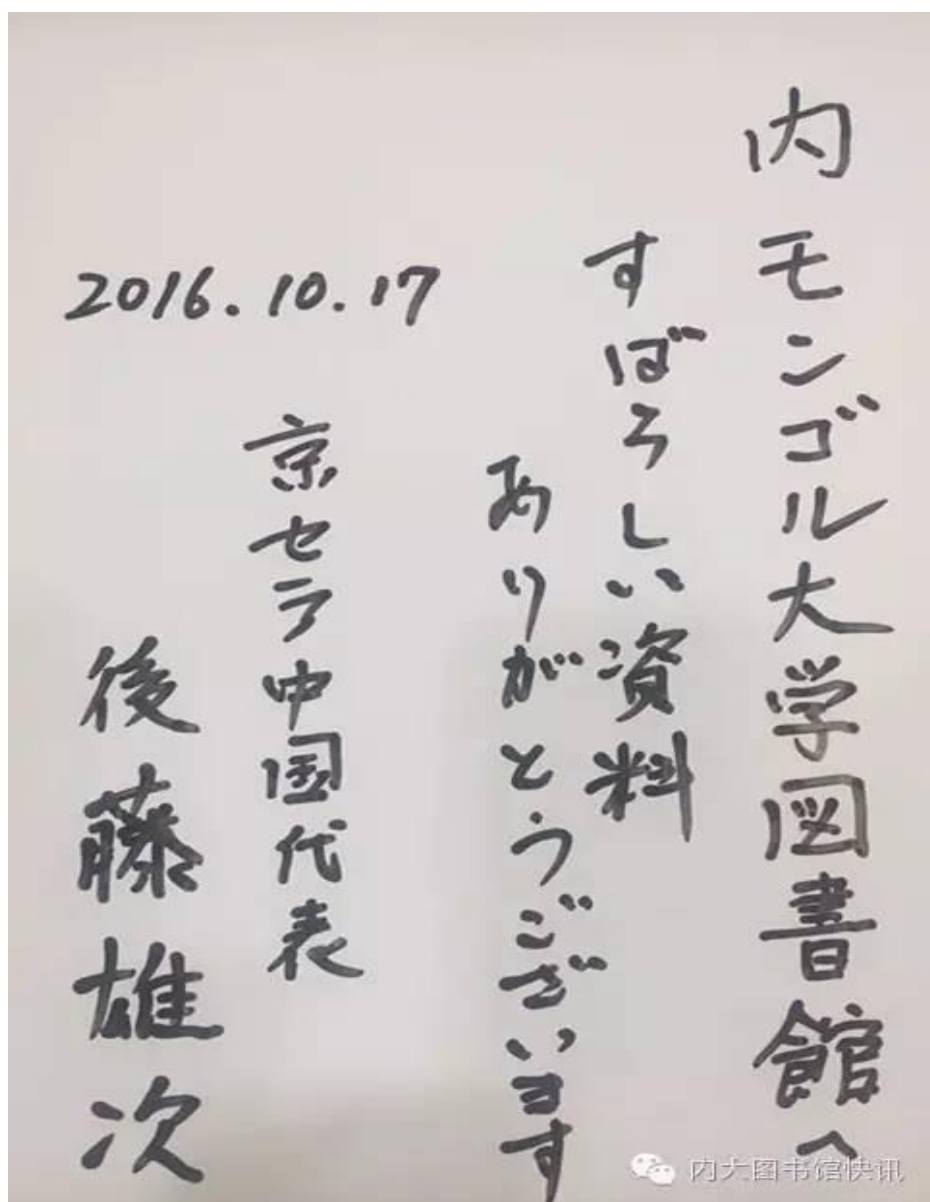 内モンゴル大学図書館へ
すばろしい資料
ありがとうございます
2016.10.17
京セラ中国代表
後藤雄次
内大图书馆快讯